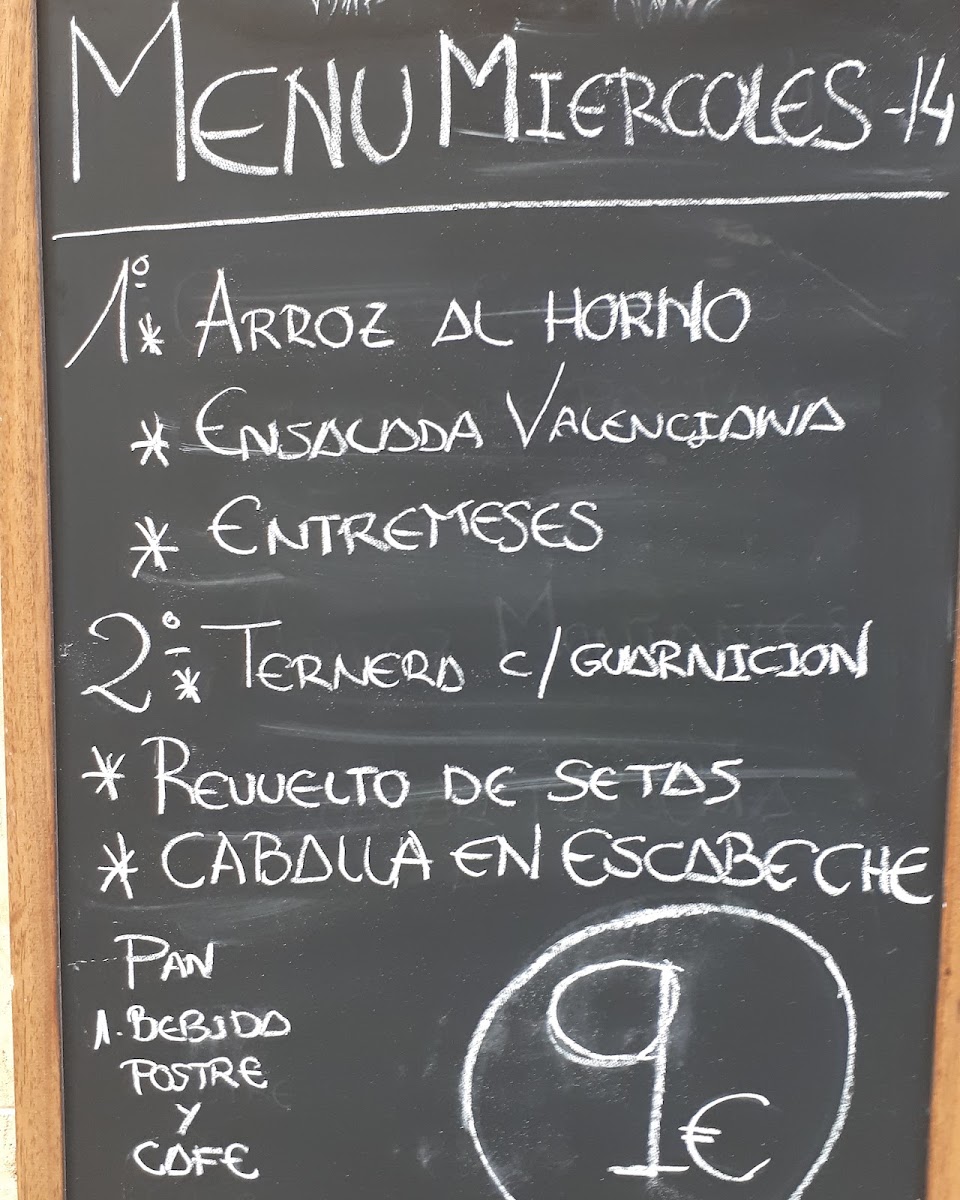 MENU MIERCOLES-14
1º * ARROZ AL HORNO
* ENSALADA VALENCIANA
* ENTREMESES
2º * TERNERA C/GUARNICION
* REVUELTO DE SETAS
* CABALLA EN ESCABECHE
PAN
1. BEBIDA
POSTRE
Y
CAFE
9€